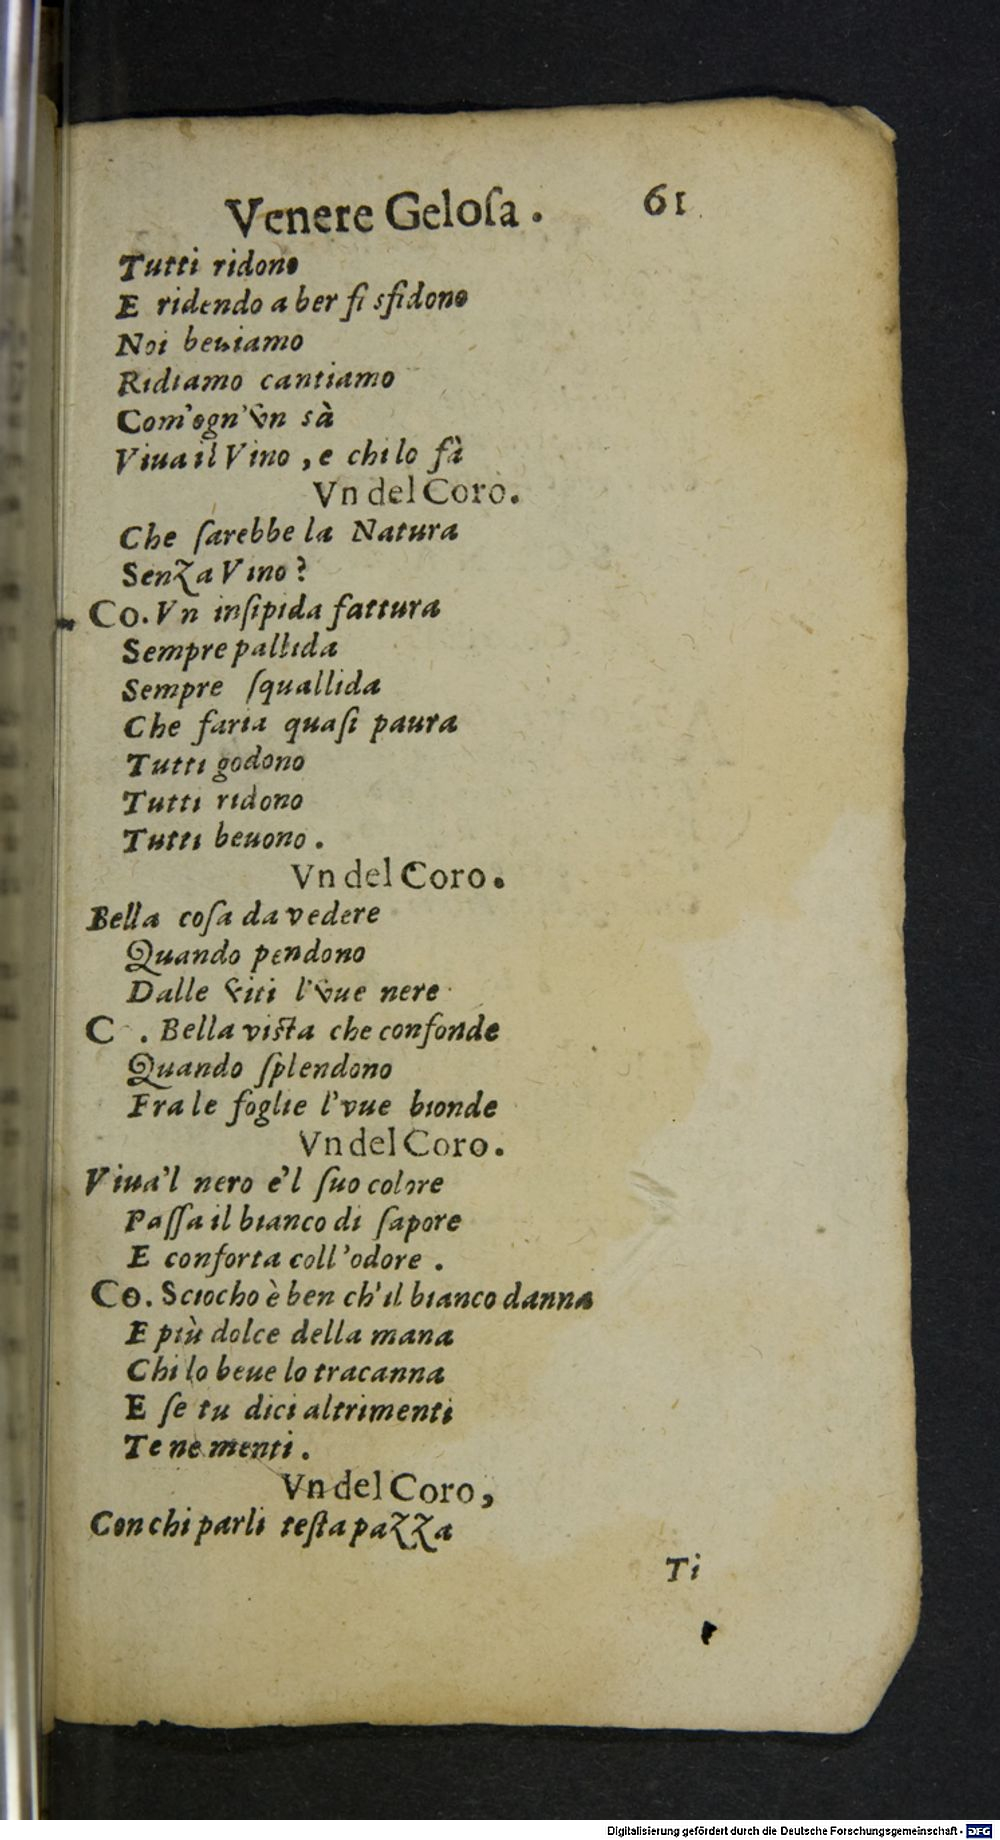 Venere Geloſa. 61
Tutti ridono
E ridendo a ber ſi sfidono
Noi beuiamo
Ridiamo cantiamo
Com'ogn'vn sà
Viua il Vino, e chi lo fà
Vn del Coro.
Che ſarebbe la Natura
Senza Vino?
Co. Vn inſipida fattura
Sempre pallida
Sempre ſquallida
Che faria quaſi paura
Tutti godono
Tutti ridono
Tutti beuono.
Vn del Coro.
Bella coſa da vedere
Quando pendono
Dalle viti l'vue nere
C . Bella viſta che confonde
Quando ſplendono
Fra le foglie l'vue bionde
Vn del Coro.
Viua'l nero e'l ſuo colore
Paſſa il bianco di ſapore
E conforta coll'odore.
Co. Sciocho è ben ch'il bianco danna
E più dolce della mana
Chi lo beue lo tracanna
E ſe tu dici altrimenti
Te ne menti.
Vn del Coro,
Con chi parli teſta pazza
Ti
Digitalisierung gefördert durch die Deutsche Forschungsgemeinschaft - DFG